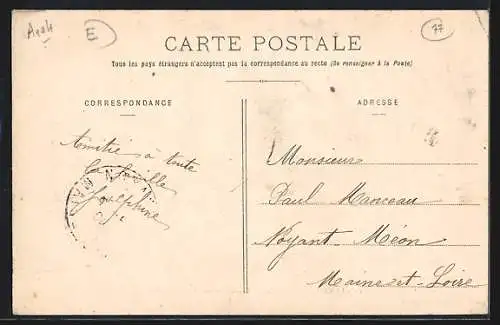 E
77
CARTE POSTALE
Tous les pays étrangers n'acceptent pas la correspondance au recto (Se renseigner à la Poste)
CORRESPONDANCE
ADRESSE
Amitié à toute
la famille
Joséphine
Monsieur
Paul Manceau
Noyant-Méon
Maine-et-Loire